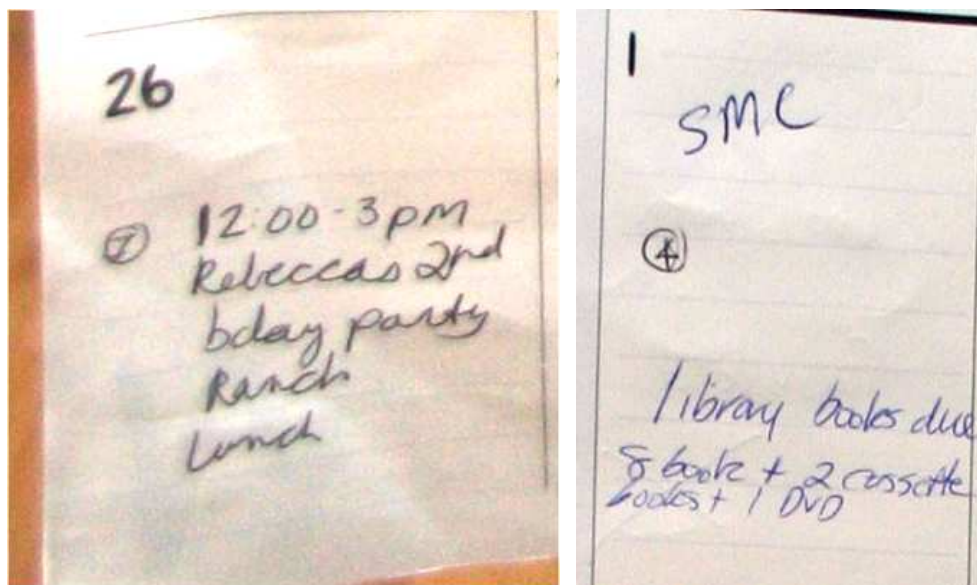 26
12:00-3pm
Rebeccas 2nd
bday party
Ranch
Lunch
1
SMC
4
library books due
8 book + 2 cassette
books + 1 DVD